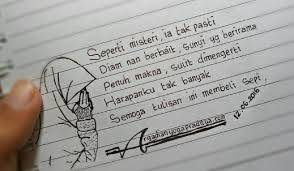 Seperti misteri, ia tak pasti
Diam nan berbait, sunyi yg berirama
Penuh makna, sulit dimengerti
Harapanku tak banyak
Semoga tulisan ini membeli sepi,
12.06.2016